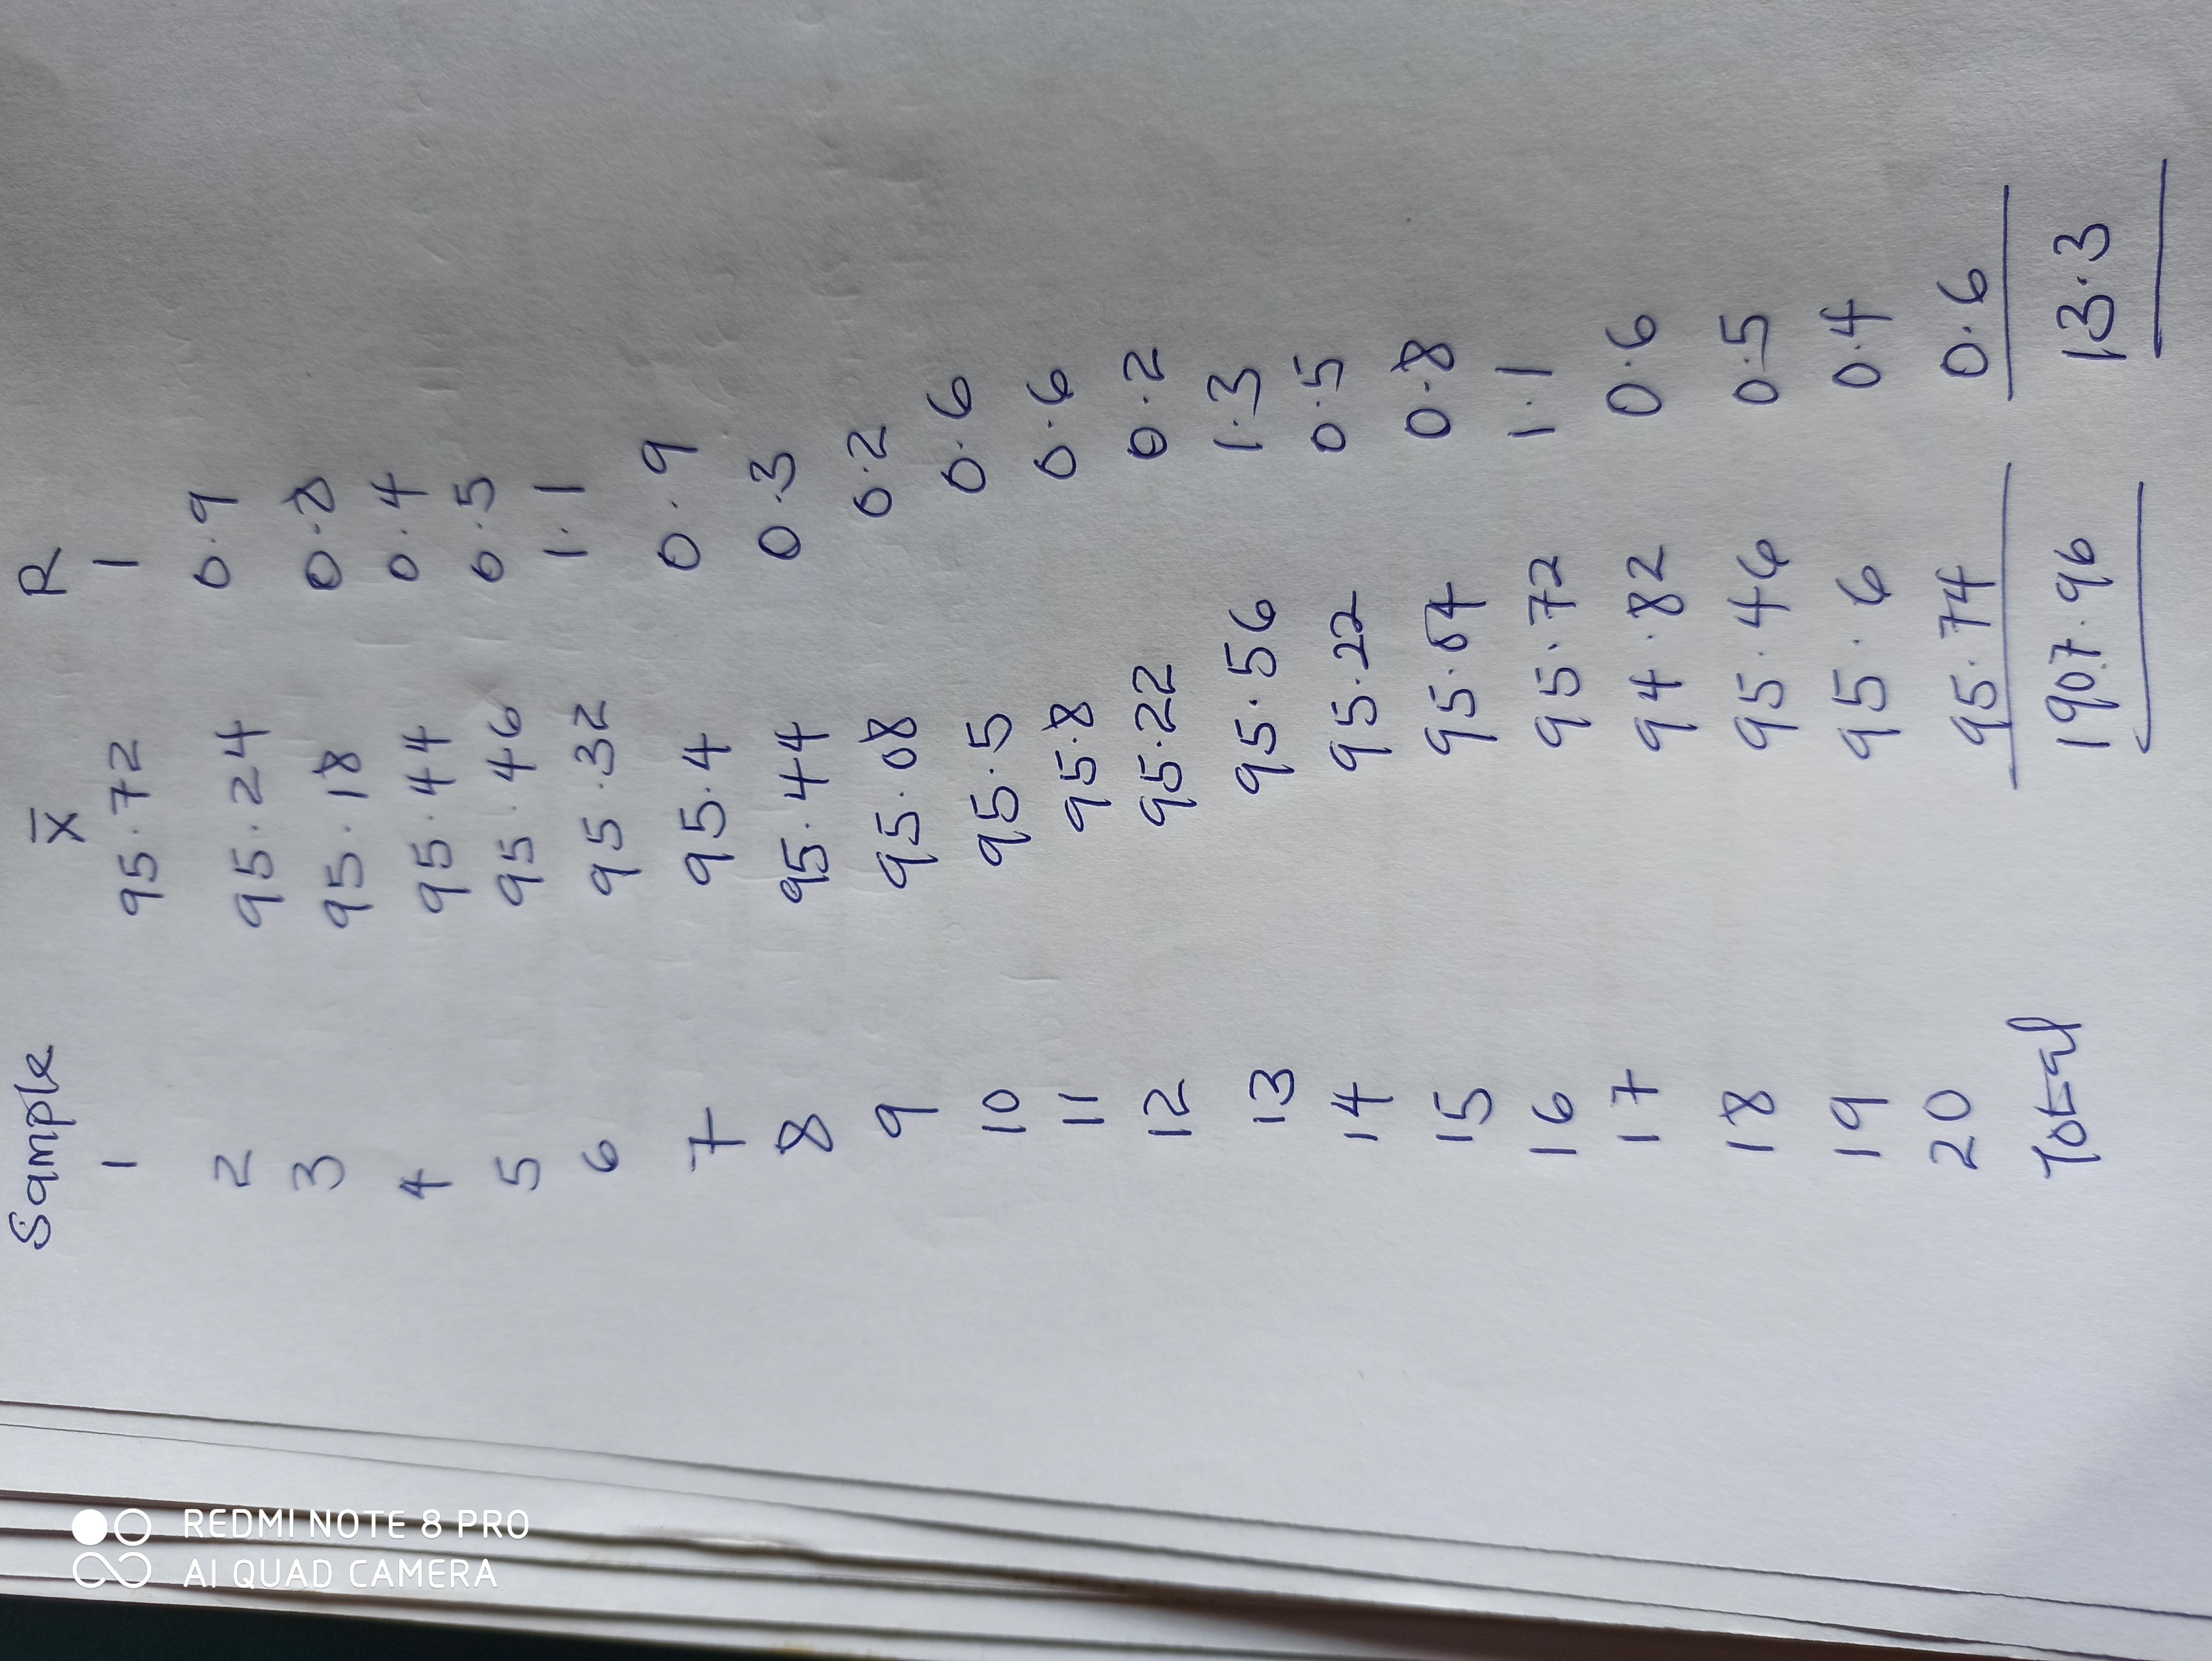 Sample X̄ R
1 95.72 1
2 95.24 0.9
3 95.18 0.8
4 95.44 0.4
5 95.46 0.5
6 95.32 1.1
7 95.4 0.9
8 95.44 0.3
9 95.08 0.2
10 95.5 0.6
11 95.8 0.6
12 95.22 0.2
13 95.56 1.3
14 95.22 0.5
15 95.04 0.8
16 95.72 1.1
17 94.82 0.6
18 95.46 0.5
19 95.6 0.4
20 95.74 0.6
Total 1907.96 13.3
REDMI NOTE 8 PRO
AI QUAD CAMERA